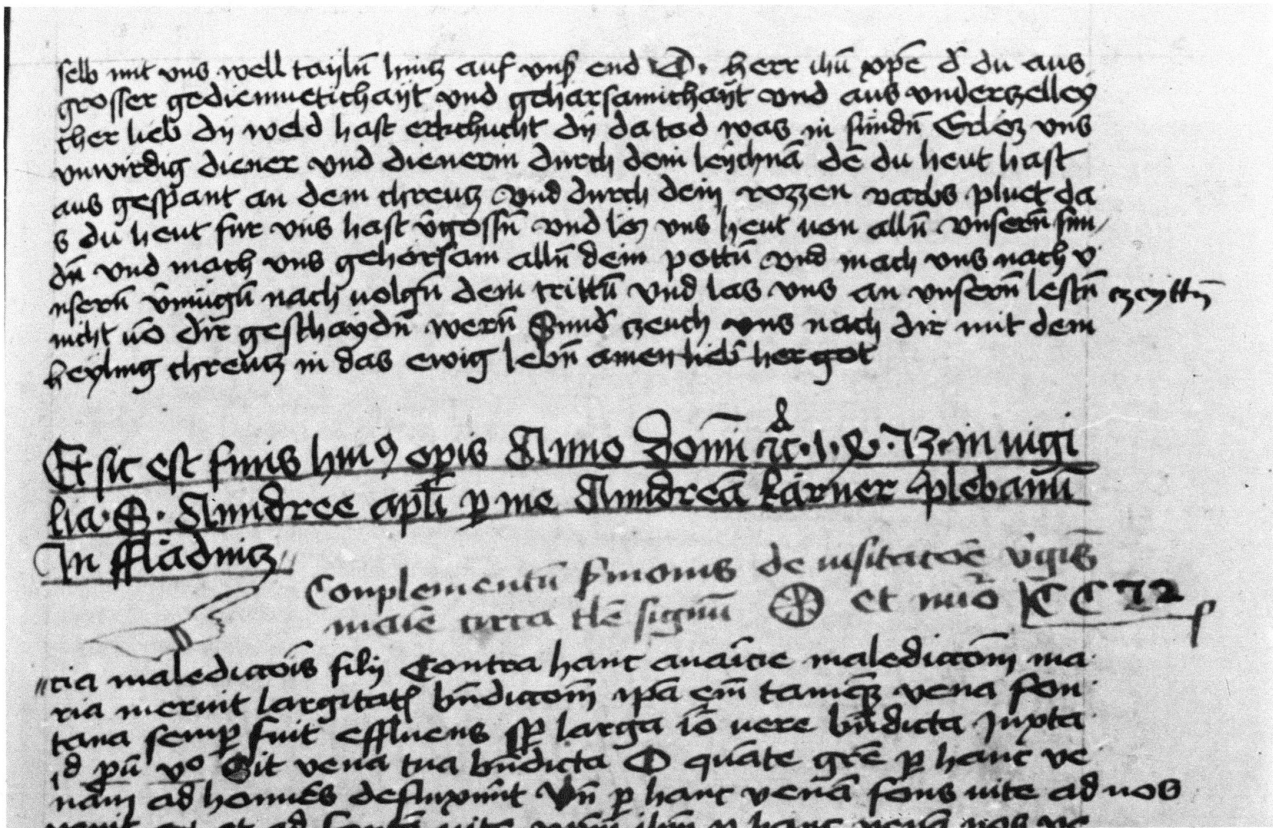 selb mit vns well tayln̄ hincz auf vnser end O. herr ihū xp̄e d̄ du aus
grosser gediemuetichayt vnd geharsamichayt vnd aus vnderczelley
cher lieb dy weld hast erkchucht dy da tod was in sundn̄ Erlöz vns
vnwirdig diener vnd dienerin durch dein leychnā dē du heut hast
aus gespant an dem chreucz vnd durch dein rozzen varbs pluet da
s du heut fur vns hast v̄gossn̄ vnd löz vns heut von alln̄ vnsern̄ sün
dn̄ vnd mach vns gehorsam alln̄ dein pottn̄ vnd mach vns nach v
nsern̄ v̄mügn̄ nach uolgn̄ dem trittn̄ vnd las vns an vnsern̄ lestn̄ czeyttn̄
nicht vō dir geschaydn̄ wern̄ Sund̄ czeuch vns nach dir mit dem
heyling chreucz in das ewig lebn̄ amen lieb̄ her got
Et sic est finis huiꝰ oꝑis Anno domī in uigi
lia S. Anndree apl̄i ꝑ me Anndreā kärner plebanū
In fflädnicz
Conplementū s̄monis de visitacōe v̄gis
marie circa tl̄e signū et nūo CC72
ria maledictōis filij Contra hanc auaricie maledictōm̄ ma
ria meruit largitatꝭ bn̄dictōm̄ ip̄a em̄ tamqꝫ vena fon
tana semꝑ fuit effluens sꝑ larga iō vere bn̄dicta Juxta
id ꝓu̅ vº Sit vena tua bn̄dicta O quante grē ꝑ hanc ve
nam̄ ad homīes defluxunt̄ Vn̄ ꝑ hanc venā fons uite ad nos